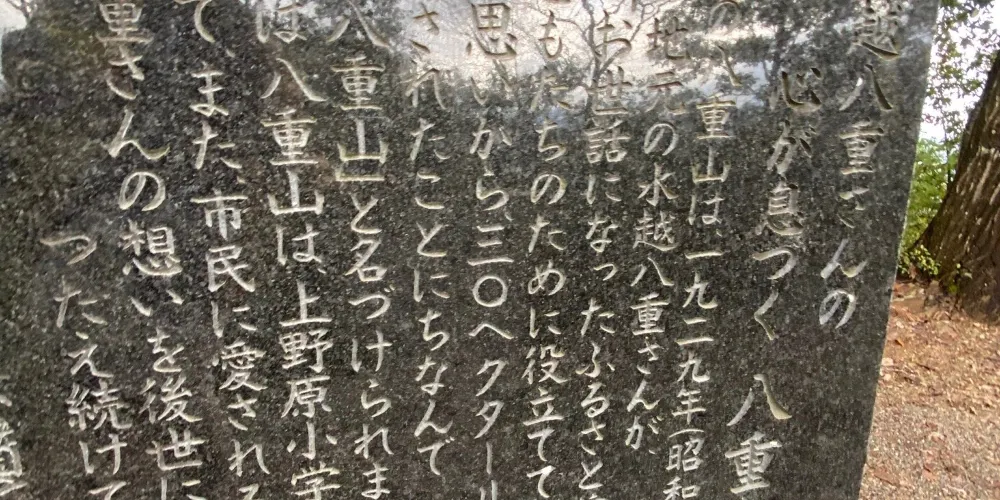 越八重さんの
心が息づく 八重
の八重山は、一九二九年(昭和
地元の水越八重さんが
お世話になったふるさと
どもたちのために役立てて
思いから、三〇ヘクタール
されたことにちなんで
八重山」と名づけられま
は八重山は、上野原小学
て、また、市民に愛され
重さんの想いを後世に
つたえ続けて